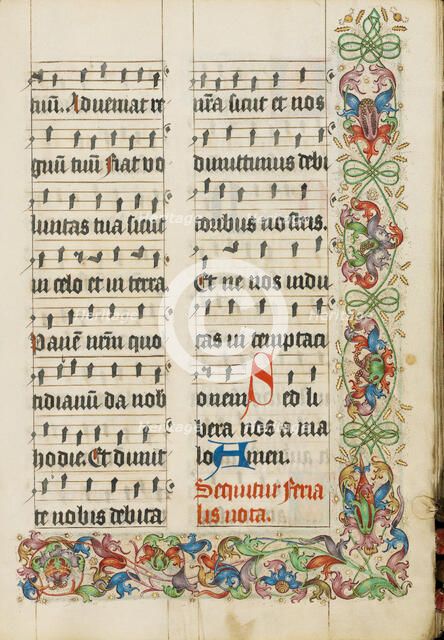 tuū. Adveniat re
gnū tuū Fiat vo
luntas tua sicut
in celo et in terra
Panē nrm̄ quo
tidianū da nob
hodie. Et dimit
te nobis debita
nr̄a sicut et nos
dimittimus debi
toribus nostris.
Et ne nos indu
cas in temptaci
onem Sed li
bera nos a ma
lo Amen.
Sequitur feria
lis nota.